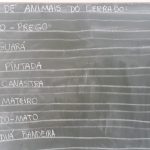 DE ANIMAIS DO CERRADO:
O-PREGO
GUARÁ
PINTADA
CANASTRA
MATEIRO
DO-MATO
DUÁ BANDEIRA